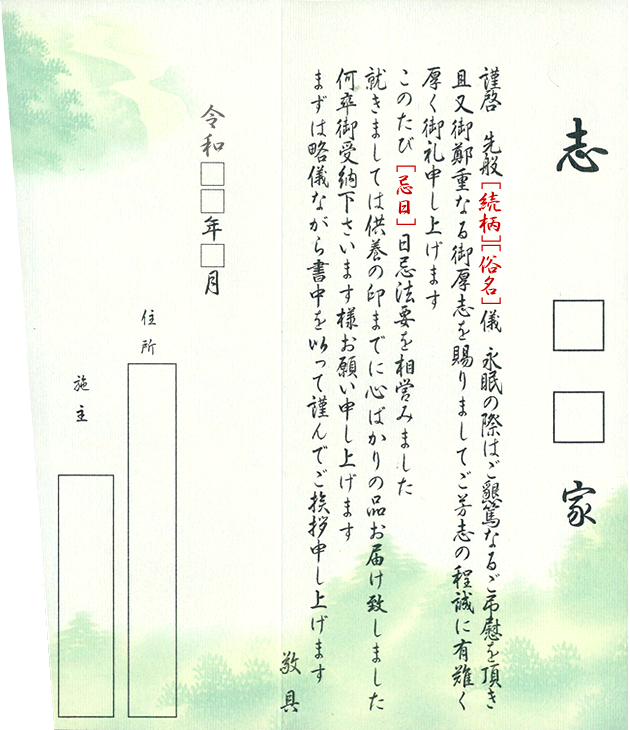 志 □ □ 家
謹啓 先般[続柄][俗名]儀 永眠の際はご懇篤なるご弔慰を頂き
且又御鄭重なる御厚志を賜りましてご芳志の程誠に有難く
厚く御礼申し上げます
このたび[忌日]日忌法要を相営みました
就きましては供養の印までに心ばかりの品お届け致しました
何卒御受納下さいます様お願い申し上げます
まずは略儀ながら書中を以って謹んでご挨拶申し上げます
敬具
令和□□年□月
住所
施主